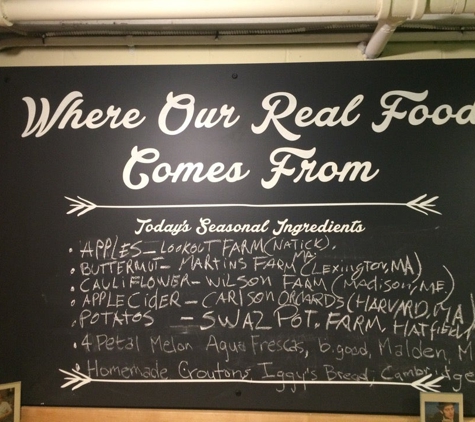 Where Our Real Food
Comes From
Today's Seasonal Ingredients
• APPLES – LOOKOUT FARM (NATICK).
MA.
• BUTTERNUT – MARTINS FARM (LEXINGTON, MA)
• CAULIFLOWER – WILSON FARM (MADISON, ME)
• APPLE CIDER – CARLSON ORCHARDS (HARVARD, MA)
• POTATOS – SWAZ POT. FARM, HATFIELD,
• 4 Petal Melon Agua Frescas, b.good, Malden, M
• Homemade Croutons Iggy's Bread, Cambridge